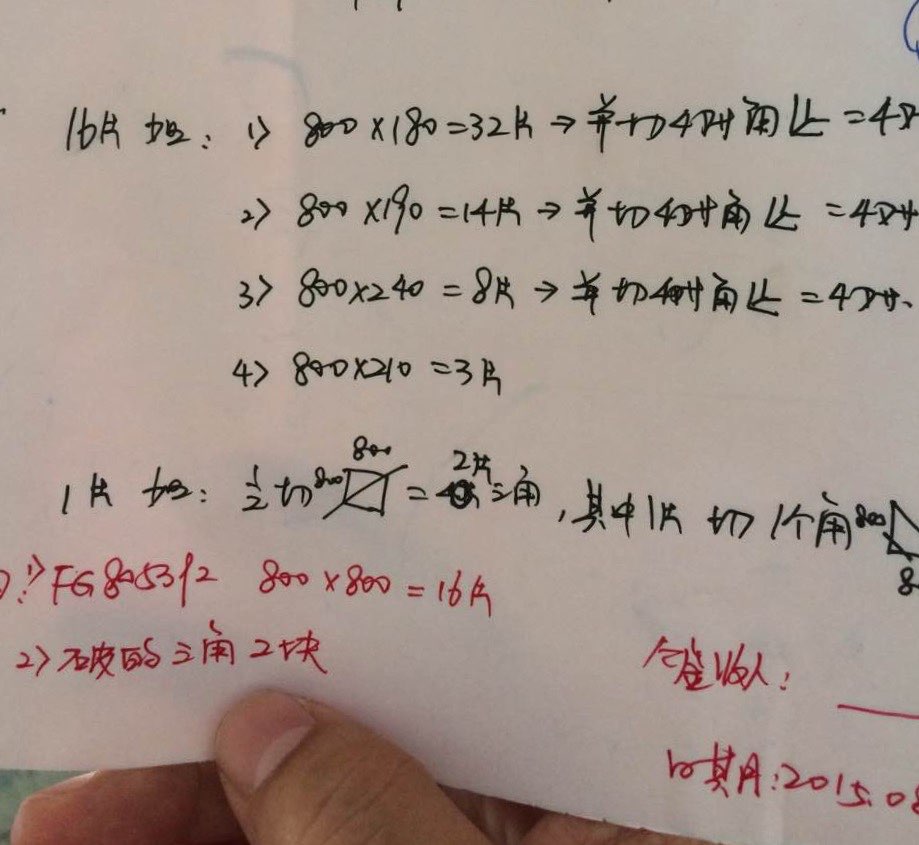 16片 加: 1> 800×180=32片→并切4对角处=4对
2> 800×190=14片→并切4对角处=4对
3> 800×240=8片→并切4对角处=4对.
4> 800×210=3片
1片 加: 1/2切 800 800 = 2片 三角, 其中1片 切1个角 800
1> FG805392 800×800=16片
2> 破的三角2块
签收人:
日期:2015.08